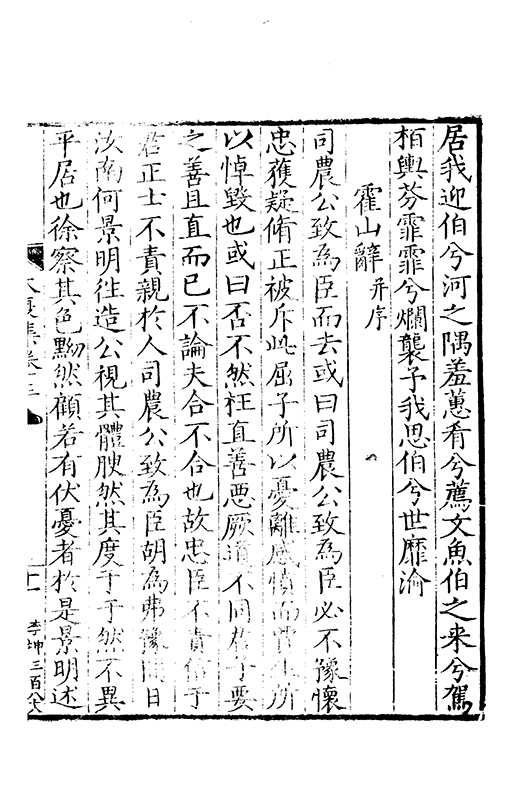 居我迎伯兮河之隅羞蕙肴兮薦文魚伯之来兮駕
栢輿芬霏霏兮爛襲予我思伯兮世靡渝
霍山辭并序
司農公致為臣而去或曰司農公致為臣必不豫懷
忠獲疑脩正被斥此屈子所以憂離感憤而賈生所
以悼毀也或曰否不然枉直善惡厥道不同君子要
之善且直而已不論夫合不合也故忠臣不責信于
君正士不責親於人司農公致為臣胡為弗豫間日
汝南何景明徃造公視其體腴然其度于于然不異
平居也徐察其色黝然顧若有伏憂者於是景明述
大復集卷十三
十一
李坤三百八六